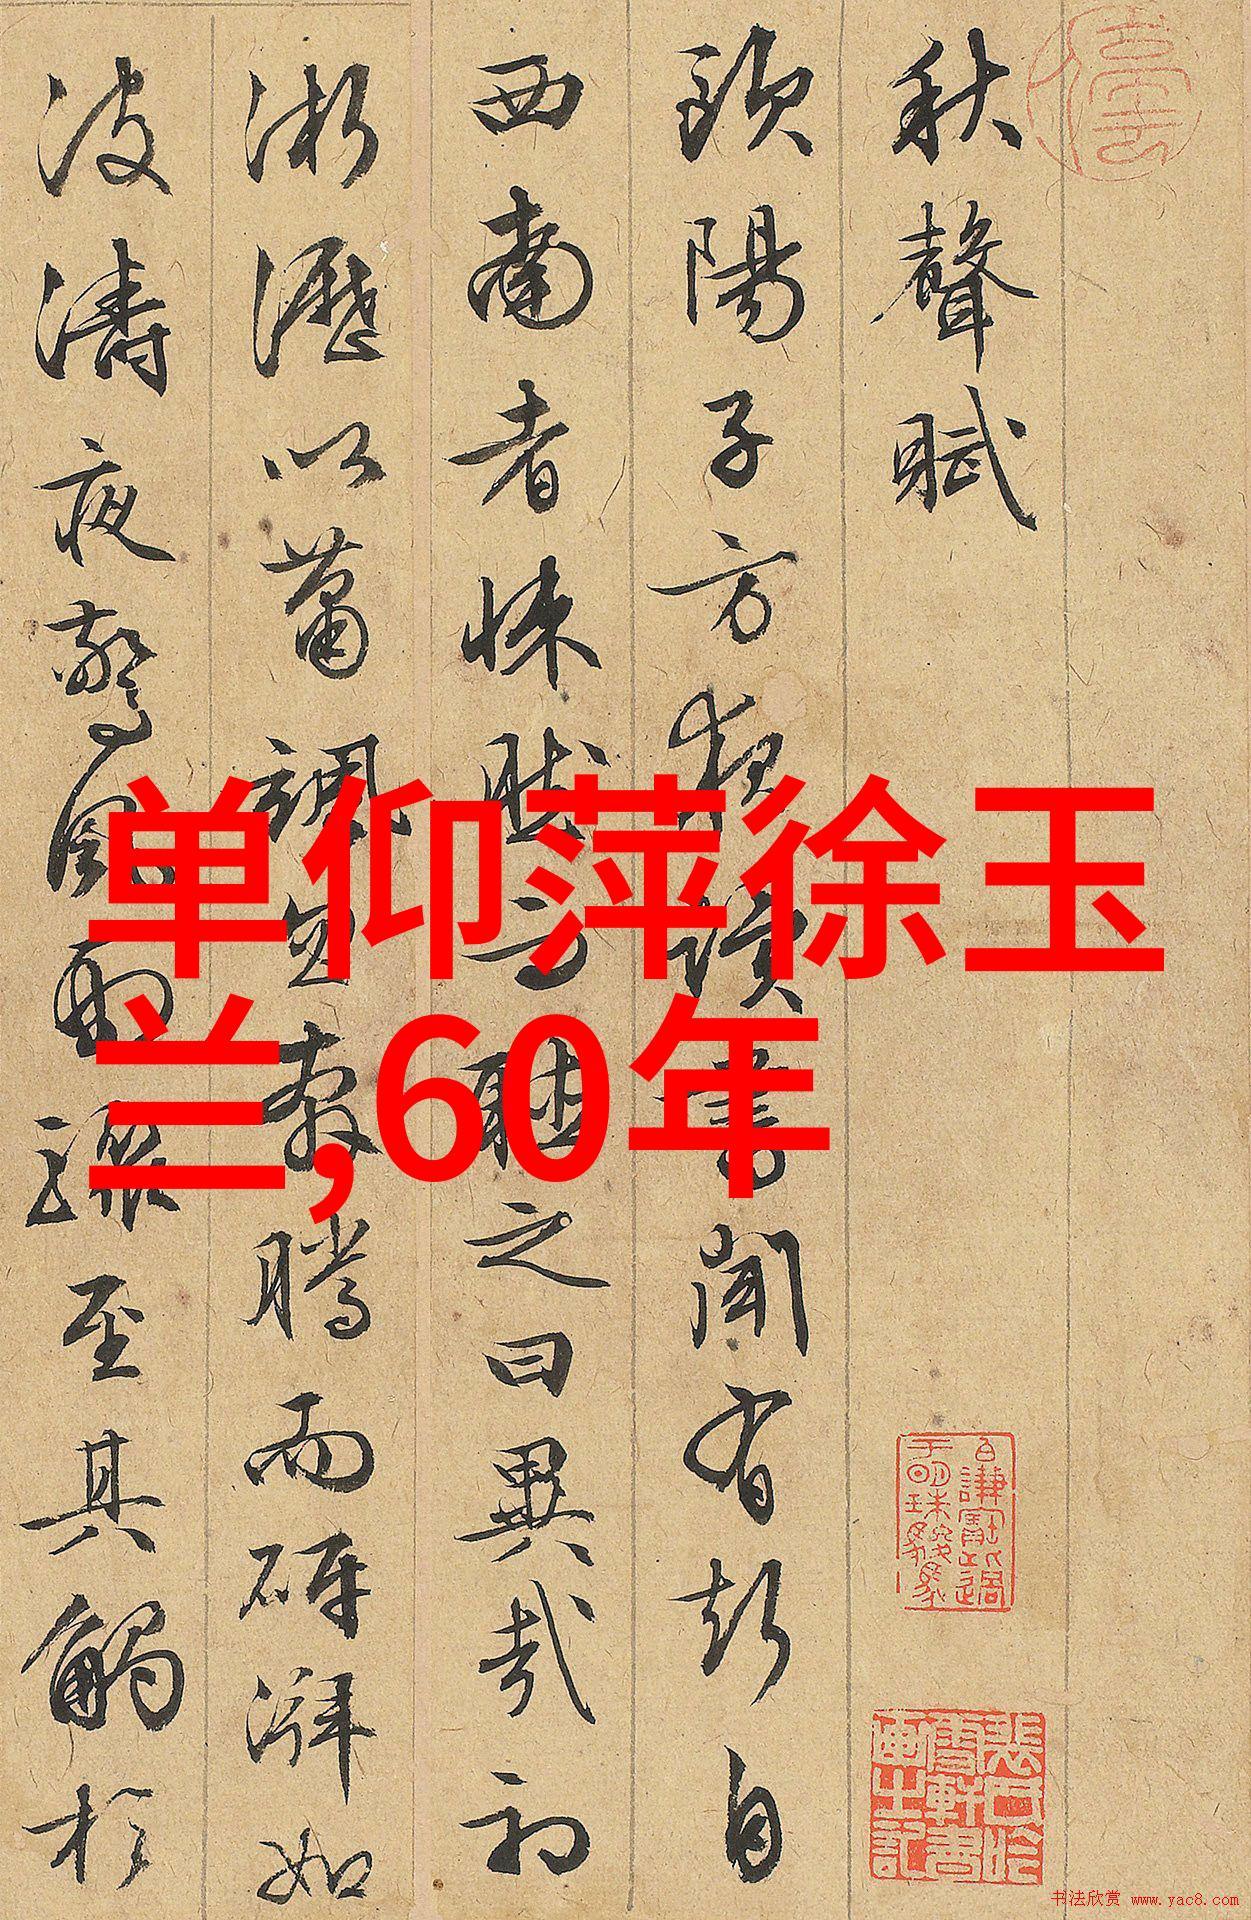 秋聲賦
歐陽子方夜讀書聞有聲自
西南者悚然而聽之曰異哉初
淅瀝以蕭颯忽奔騰而砰湃如
波濤夜驚風雨驟至其觸於
单仰萍徐玉
兰,60年
书法欣赏 www.yac8.com